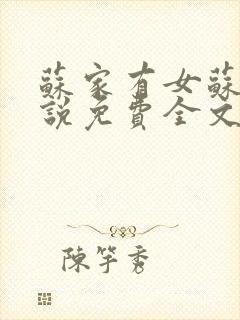 蘇家有女蘇
說免費全文
陳竽秀